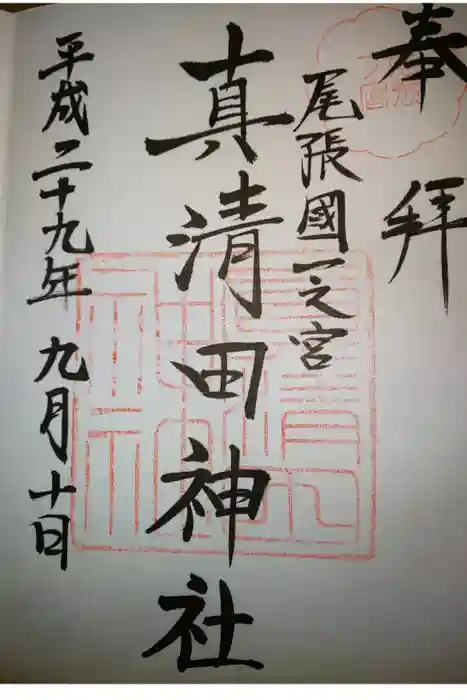 奉拝
尾張國一之宮
真清田神社
平成二十九年 九月十日